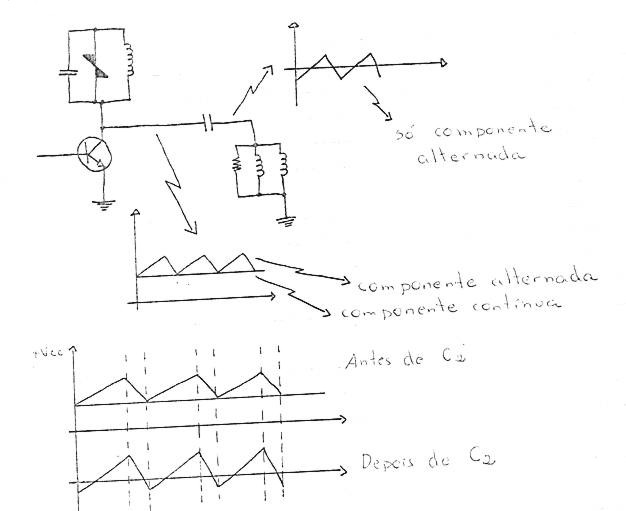 só componente
alternada
componente alternada
componente contínua
+Vcc
Antes de C2
Depois de C2